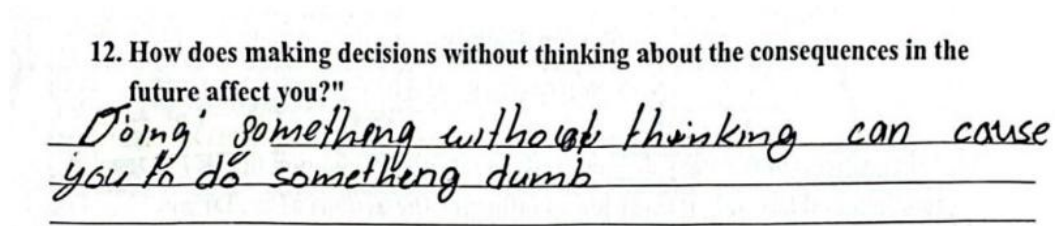 12. How does making decisions without thinking about the consequences in the
future affect you?"
Doing something without thinking can cause
you to do sometheng dumb